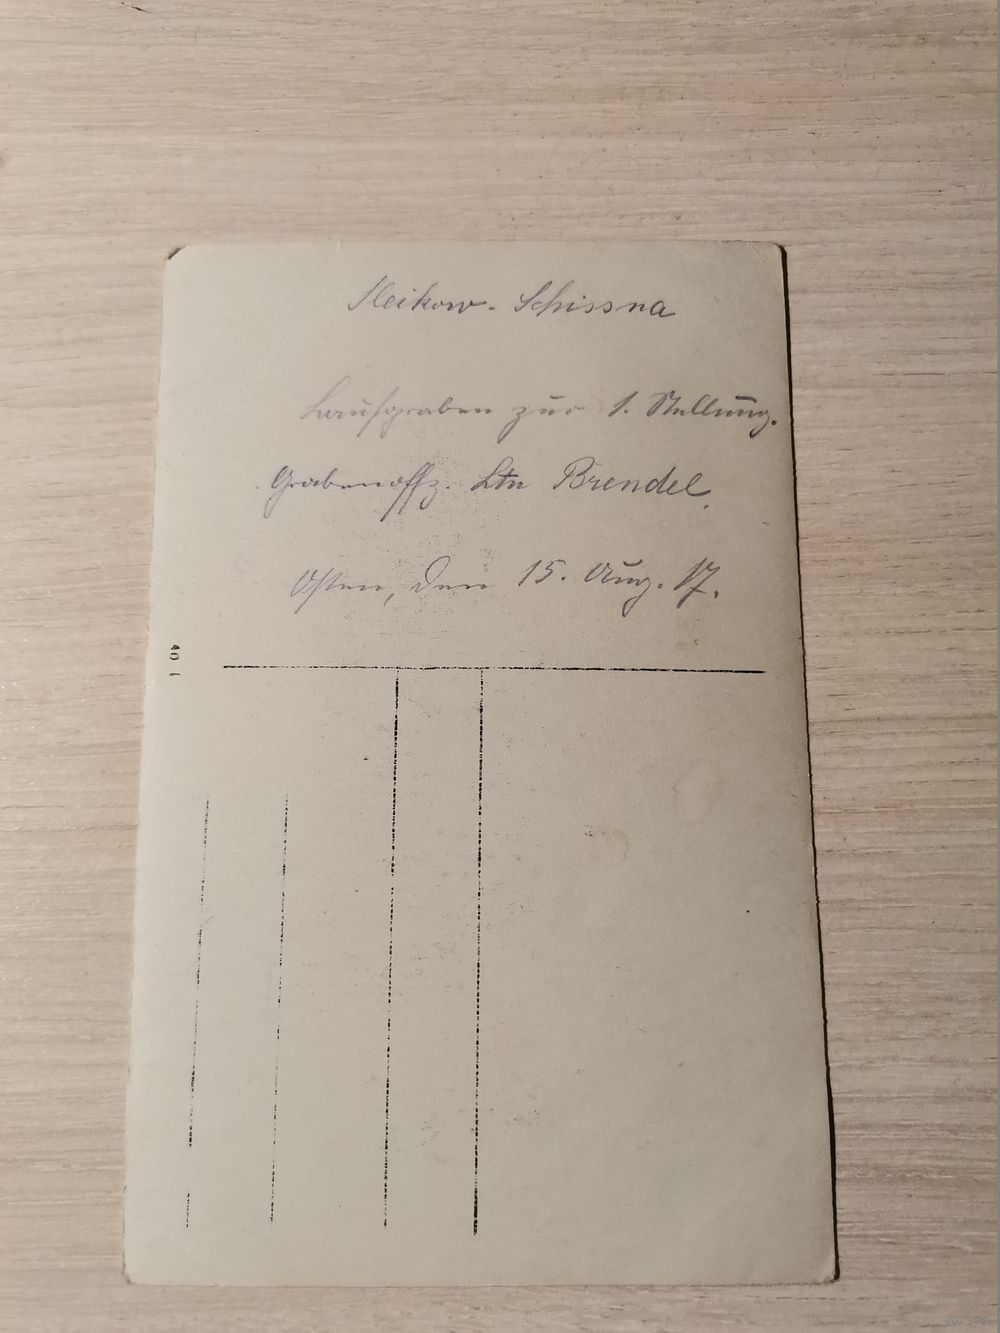 Schissna
Laufgraben zur 1. Stellung.
Grabenoffz. Ltn Brendel.
Osten, den 15. Aug. 17.
40 L